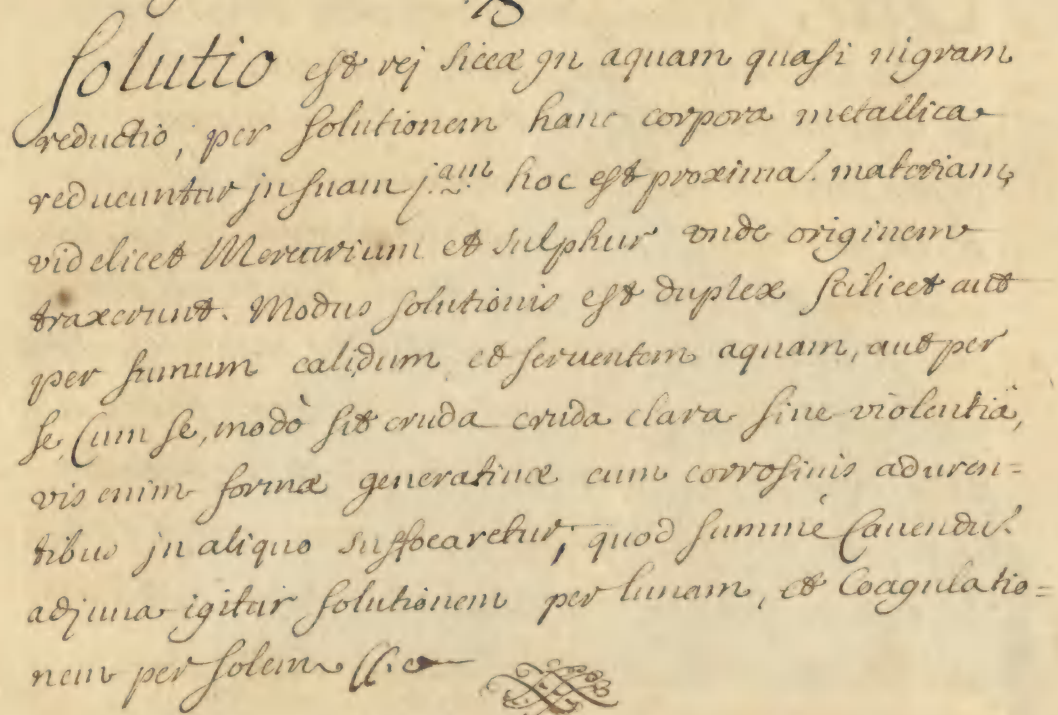 Solutio est rej siccæ jn aquam quasi nigram
reductio, per solutionem hanc corpora metallica
reducuntur jn suam j.am hoc est proxima. materiam,
videlicet Mercurium et sulphur vnde originem
traxerunt. Modus solutionis est duplex scilicet aut
per fumum calidum et feruentem aquam, aut per
se, Cum se, modò sit cruda cruda clara sine violentiâ,
vis enim formæ generatiuæ cum corrosiuis aduren=
tibus jn aliquo suffocaretur, quod summè Cauendu.
adjuua igitur solutionem per lunam, et Coagulatio=
nem per solem